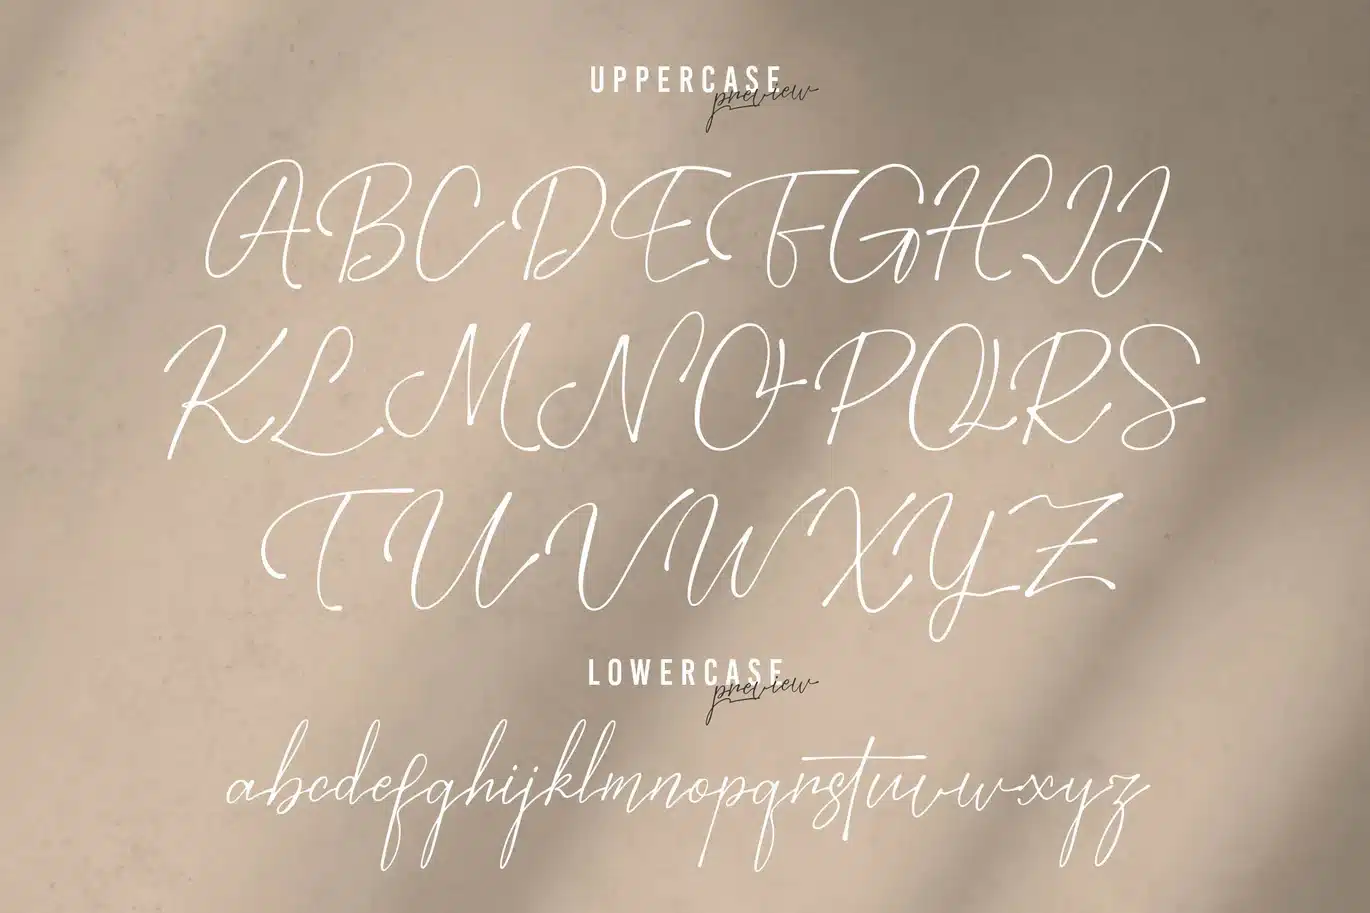 UPPERCASE
preview
ABCDEFGHIJ
KLMNOPQRS
TUVWXYZ
LOWERCASE
preview
abcdefghijklmnopqrstuvwxyz